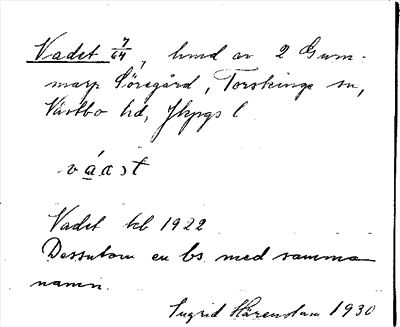 Vadet 7/64, hmd av 2 Gum-
marp Söregård, Torskinge sn,
Västbo hd, Jkpgs l
Vadet kb 1922
Dessutom en bs. med samma
namn.
Ingrid Härenstam 1930